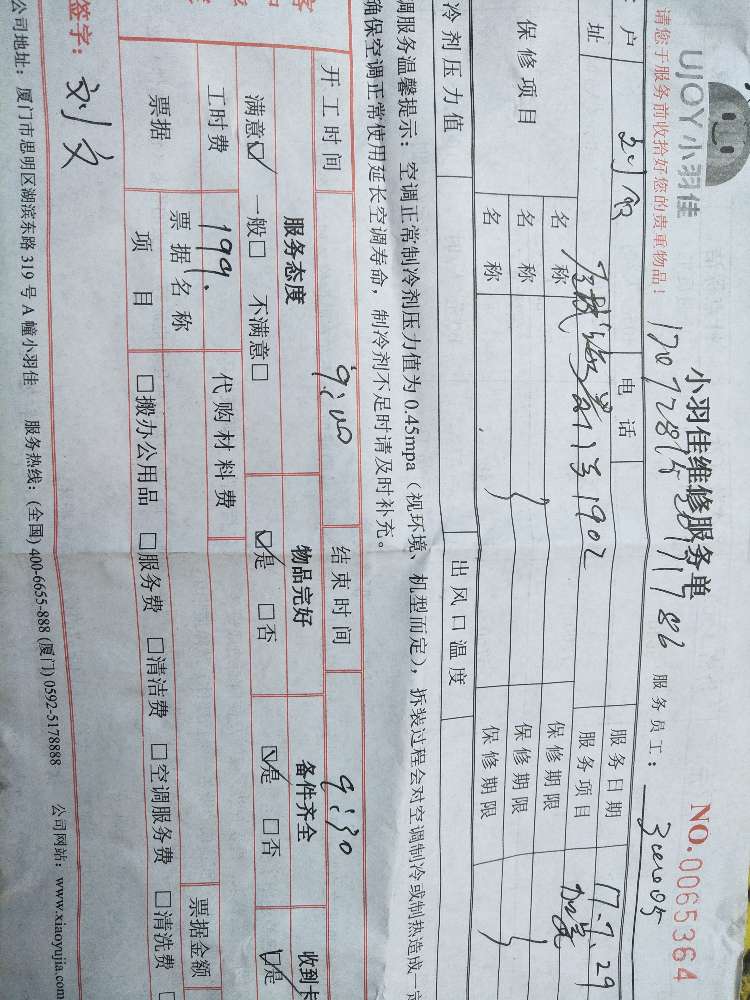 UJOY小羽佳
小羽佳维修服务单
NO.0065364
请您于服务前收拾好您的贵重物品！
服务员工：
户
电话
服务日期
17.7.29
址
1902
服务项目
保修项目
名称
保修期限
名称
保修期限
名称
保修期限
冷剂压力值
出风口温度
调服务温馨提示：空调正常制冷剂压力值为0.45mpa（视环境、机型而定），拆装过程会对空调制冷或制热造成一定
确保空调正常使用延长空调寿命，制冷剂不足时请及时补充。
开工时间
9:00
结束时间
9:30
服务态度
物品完好
备件齐全
收到卡
满意☑ 一般□ 不满意□
☑是 □否
☑是 □否
☑是
工时费
199.
代购材料费
票据
票据名称
票据金额
项目
□搬办公用品 □服务费 □清洁费 □空调服务费 □清洗费 □
签字：
刘文
公司地址：厦门市思明区湖滨东路319号A幢小羽佳 服务热线：(全国) 400-6655-888 (厦门) 0592-5178888 公司网站：www.xiaoyujia.com